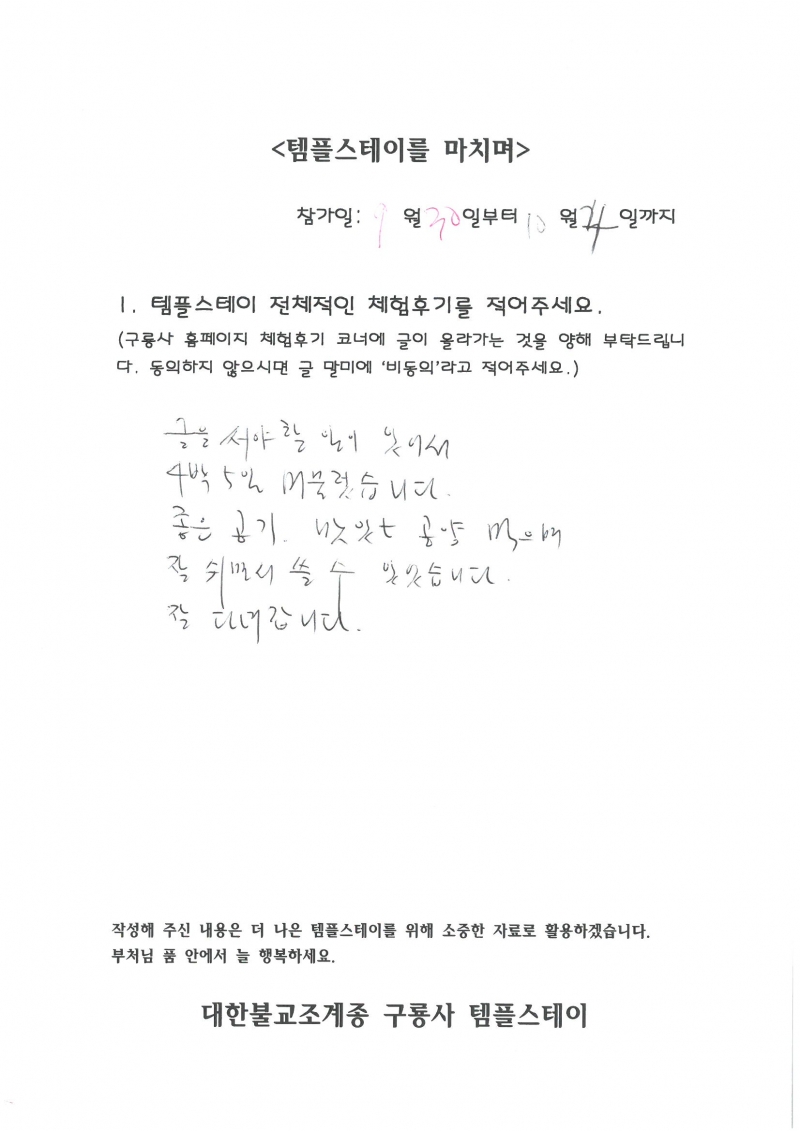 <템플스테이를 마치며>
참가일: 9 월 30 일부터 10 월 4 일까지
1. 템플스테이 전체적인 체험후기를 적어주세요.
(구룡사 홈페이지 체험후기 코너에 글이 올라가는 것을 양해 부탁드립니
다. 동의하지 않으시면 글 말미에 '비동의'라고 적어주세요.)
글을 써야 할 일이 있어서
4박 5일 머물렀습니다.
좋은 공기. 맛있는 공양 먹으며
잘 쉬면서 쓸 수 있었습니다.
잘 다녀갑니다.
작성해 주신 내용은 더 나은 템플스테이를 위해 소중한 자료로 활용하겠습니다.
부처님 품 안에서 늘 행복하세요.
대한불교조계종 구룡사 템플스테이